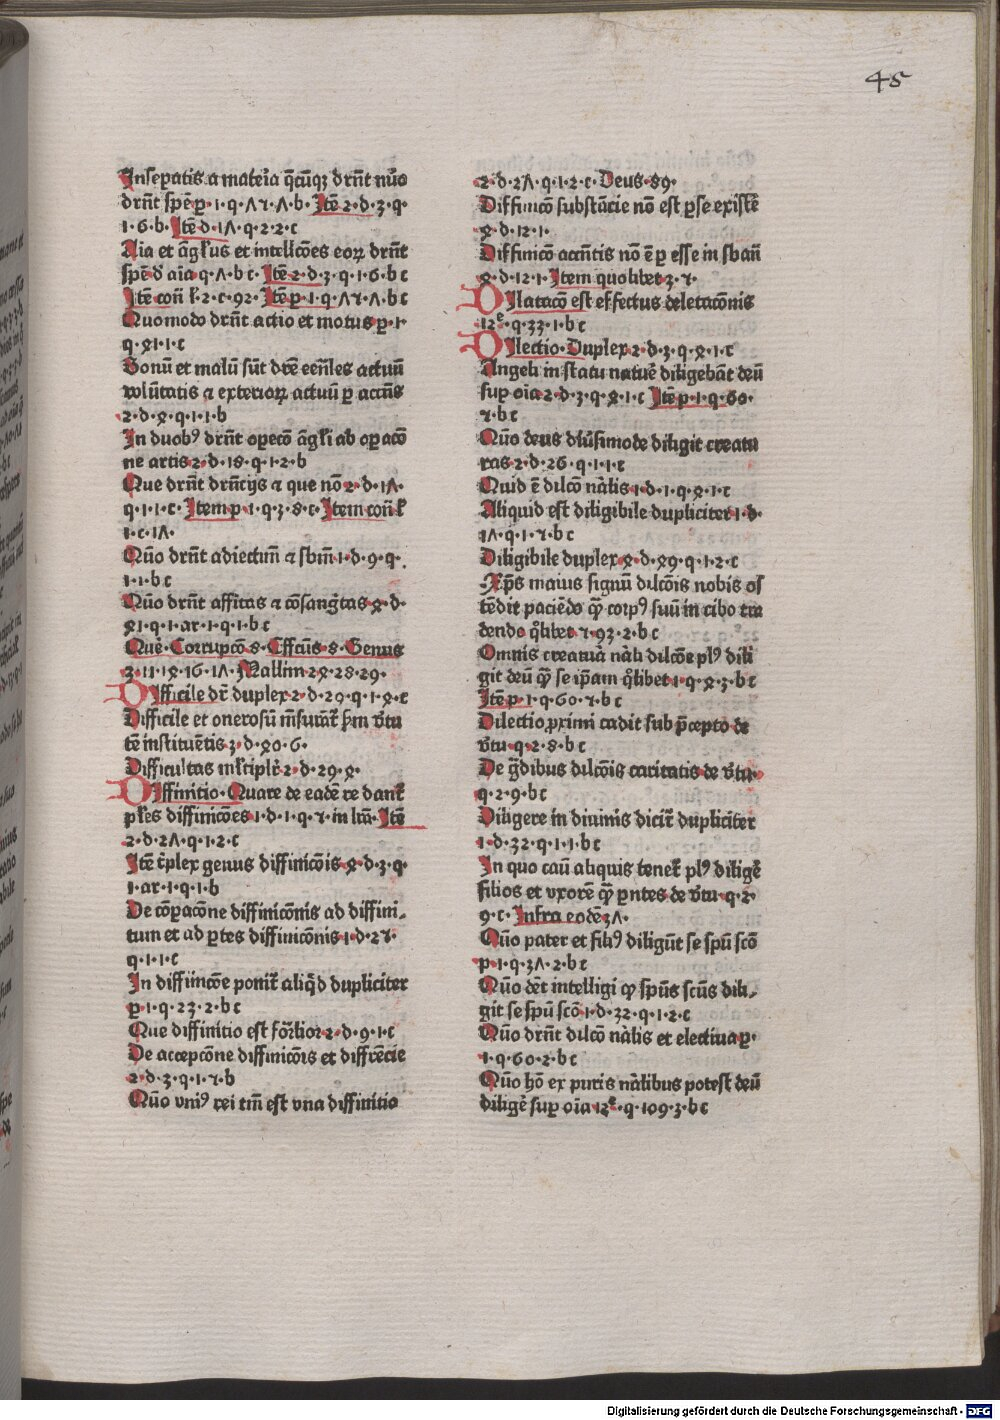 45
Inſeꝑatis a mateīa q̄cūqꝫ drn̄t nūo
drn̄t ſpē̄ ꝑ·1·q·Λ7·Λ·b· Itē 2·d·3·q·
1·6·b· Itē d·1Λ·q·2·2·c
Aīa et āgl̓us et intellc̄oēs eoꝝ drn̄t
ſpē d̓ aīa q·Λ·b c· Itē 2·d·3·q·1·6·b c
Itē con̄ l̓·2·c·92· Itē p·1·q·Λ7·Λ·b c
Quomodo drn̄t actio et motus p·1·
q·81·1·c
Bonū et malū ſūt dr̄e eēn̄les actuū
volūtatis ⁊ exterioꝝ actuū ꝑ accn̄s
2·d·8·q·1·1·b
In duobꝰ drn̄t oꝑec̄o āgl̓i ab oꝑac̄o
ne artis 2·d·18·q·1·2·b
Que drn̄t drn̄cijs ⁊ que nō 2·d·1Λ·
q·1·1·c· Item p·1·q·3·8·c· Item con̄ l̓
1·c·1Λ·
Quō drn̄t adiectiuū ⁊ sbm̄ 1·d·9·q·
1·1·b c
Quō drn̄t affītas ⁊ cōſang̓tas 8·d·
81·q·1·ar·1·q·1·b c
Que· Corrupcō 8· Effcūs 8· Genus
3·11·18·16·1Λ· Mallim 28·28·29·
Difficile dr̄ duplex 2·d·29·q·1·8·c
Difficile et oneroſū m̄ſurat̓ ẜm v̓tu
tē inſtituētis 3·d·80·6·
Difficultas ml̓tiplr̄ 2·d·29·8·
Diffinitio· Quare de eadē re dant̓
pl̓es diffinic̄oēs 1·d·1·q·7·in ln̄i· Itē
2·d·2Λ·q·1·2·c
Itē t̓plex genus diffinic̄oīs 8·d·3·q·
1·ar·1·q·1·b
De cōꝑac̄one diffinic̄onis ad diffini⸗
tum et ad ꝑtes diffinic̄onis 1·d·27·
q·1·1·c
In diffinic̄oē ponit̓ aliq̓d dupliciter
p·1·q·23·2·b c
Que diffinitio eſt for̄lior 2·d·9·1·c
De accepc̄one diffinic̄oīs et diffrēcie
2·d·3·q·1·7·b
Quō vniꝰ rei tm̄ eſt vna diffinitio
2·d·2Λ·q·1·2·c· Deus 89·
Diffinic̄o ſubſtācie nō eſt ꝑ ſe exiſtē
8·d·12·1·
Diffinic̄o accn̄tis nō ē ꝑ eſſe in sbaū
8·d·12·1· Item quolibet 3·7·
Dilatac̄o eſt effectus delectac̄onis
12ᵉ·q·33·1·b c
Dilectio· Duplex 2·d·3·q·8·1·c
Angeli in ſtatu natuē diligebāt deū
ſuꝑ oīa 2·d·3·q·8·1·c Itē p·1·q·60·
7·b c
Quō deus diūſimode diligit creatu
ras 2·d·26·q·1·1·c
Quid ē dilc̄o nālis 1·d·1·q·8·1·c
Aliquid eſt diligibile dupliciter 1·d·
1Λ·q·1·7·b c
Diligibile duplex 8·d·89·q·1·2·c
Xp̄s maius ſignū dilc̄oīs nobis oſ
tēdit paciēdo qꝫ corpꝰ ſuū in cibo tra
dendo q̓libet 7·93·2·b c
Omnis creatuā nāli dilc̄oe plꝰ dili
git deū qꝫ ſe ip̄am q̓libet 1·q·8·3·b c
Itē p·1·q·60·7·b c
Dilectio ꝓximi cadit ſub p̄cepto de
v̓tu·q·2·8·b c
De g̓dibus dilc̄oīs caritatis de v̓tu·
q·2·9·b c
Diligere in diuinis dicit̓ dupliciter
1·d·32·q·1·1·b c
In quo caū aliquis tenet̓ plꝰ diligē
filios et vxorē qꝫ ꝑntes de v̓tu·q·2·
9·c· Infra eodē 3Λ·
Quō pater et filiꝰ diligūt ſe ſpū ſcō
p·1·q·3Λ·2·b c
Quō dꝫ intelligi qꝫ ſpūs ſcūs dili⸗
git ſe ſpū ſcō 1·d·32·q·1·2·c
Quō drn̄t dilc̄o nālis et electiua p·
1·q·60·2·b c
Quō hō ex puris nālibus poteſt deū
diligē ſuꝑ oīa 12ᵉ·q·109·3·b c
Digitalisierung gefördert durch die Deutsche Forschungsgemeinschaft - DFG